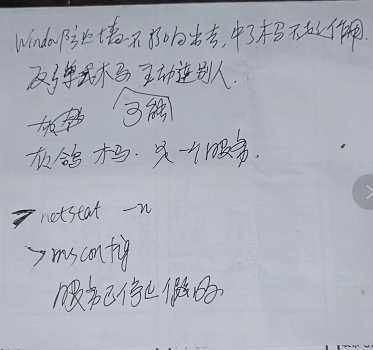 Window防火墙不影响出去,中了木马不起作用.
反弹式木马 主动连别人.
灰鸽 可能
灰鸽木马. 是一个服务.
> netstat -n
> msconfig
服务已停止 假的